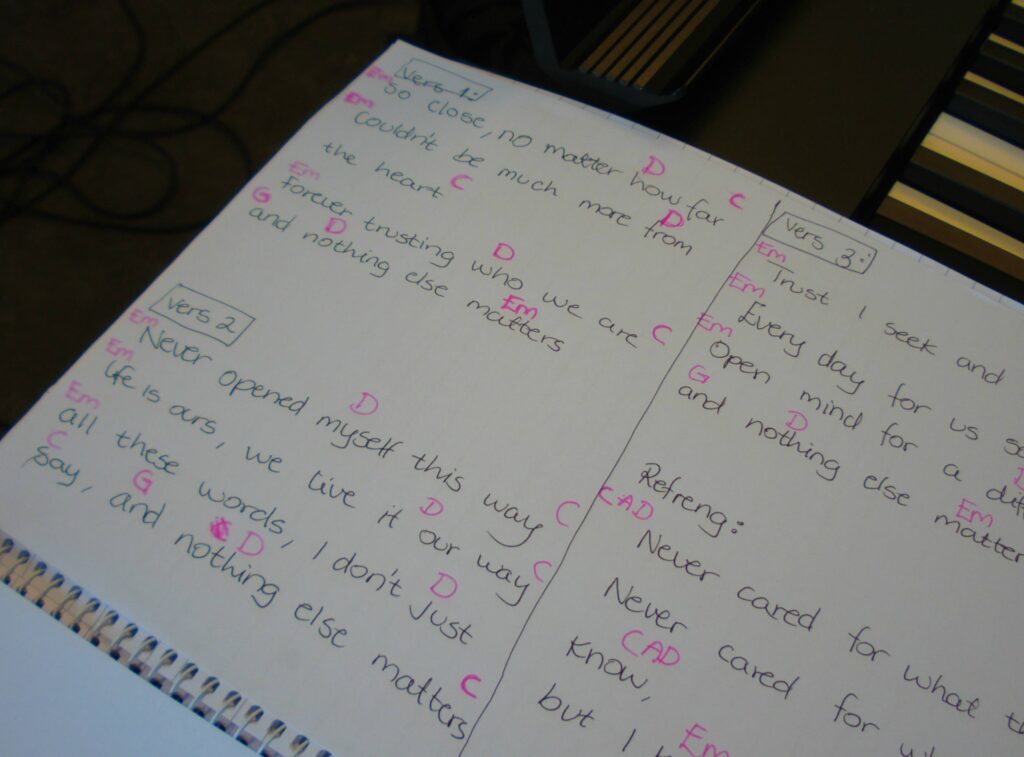 vers 1:
Em
So close, no matter how far
Em D C
Couldn't be much more from
D
the heart C
Em
forever trusting who we are
G D D C
and nothing else matters
Em
vers 2
Em
Never opened myself this way
Em D C
life is ours, we live it our way
Em D C
all these words, I don't just
C D
say, and nothing else matters
G D C
vers 3:
Em
Trust I seek and
Em
Every day for us
Em
Open mind for a
G D
and nothing else matter
Em
Refreng:
CAD
Never cared for what
Never cared for
CAD
know,
but I
Em